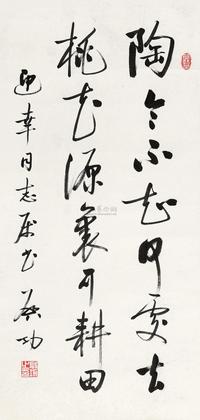 陶令不知何處去
桃花源裏可耕田
迎幸同志属书 啟功